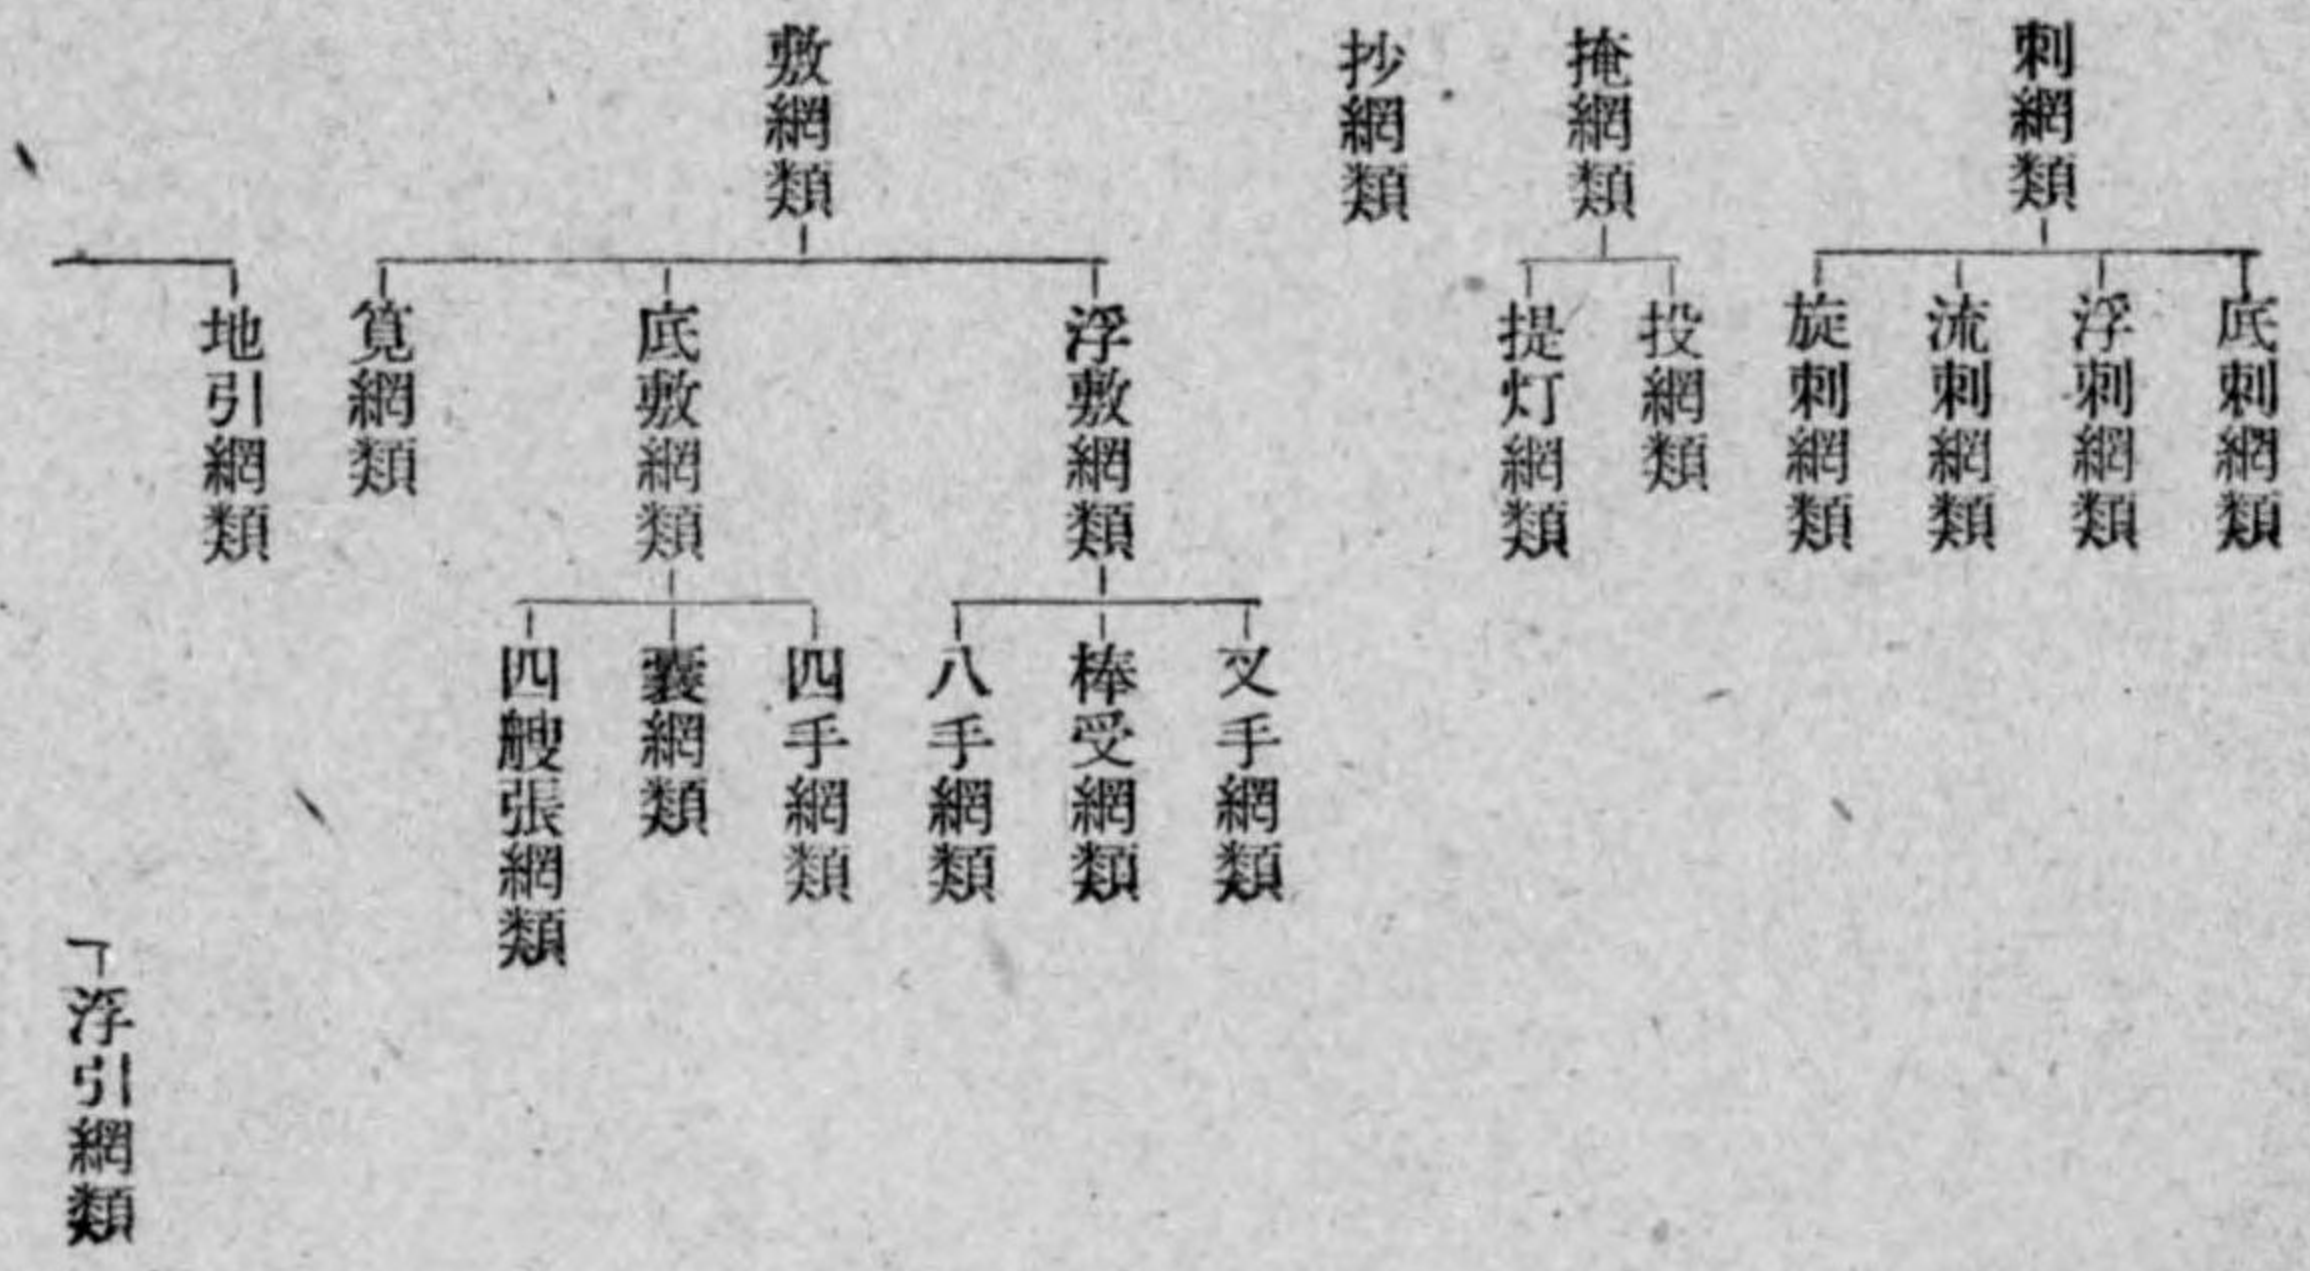 刺網類
底刺網類
浮刺網類
流刺網類
旋刺網類
掩網類
投網類
提灯網類
抄網類
敷網類
浮敷網類
叉手網類
棒受網類
八手網類
底敷網類
四手網類
嚢網類
四艘張網類
筧網類
地引網類
浮引網類